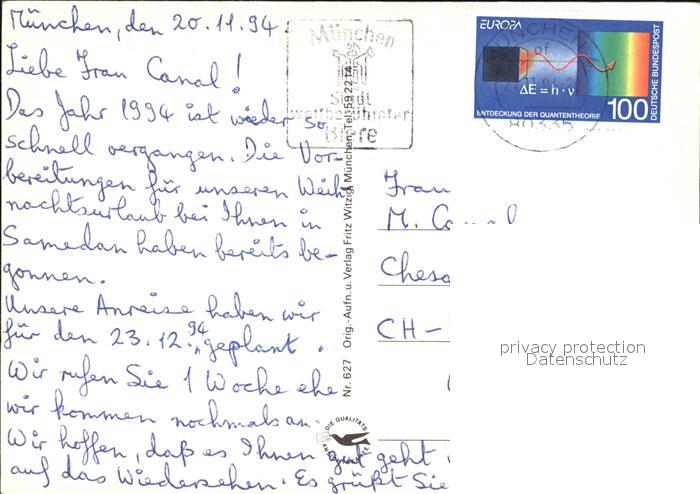 München, den 20.11.94.
Liebe Frau Canal!
Das Jahr 1994 ist wieder so
schnell vergangen. Die Vor-
bereitungen für unseren Weih
nachtsurlaub bei Ihnen in
Samedan haben bereits be-
gonnen.
Unsere Anreise haben wir
für den 23.12.94 geplant.
Wir rufen Sie 1 Woche ehe
wir kommen nochmals an.
Wir hoffen, daß es Ihnen gut geht
auf das Wiedersehen. Es grüßt Sie
München
Stadt
weltberühmter
Biere
Nr. 627 Orig.-Aufn. u. Verlag Fritz Witzig, München, Tel. 592214
DIE QUALITÄTS
EUROPA
ΔE = h · ν
ENTDECKUNG DER QUANTENTHEORIE
100
DEUTSCHE BUNDESPOST
MÜNCHEN
80335
Frau
M. Canal
Chesa
CH-
privacy protection
Datenschutz